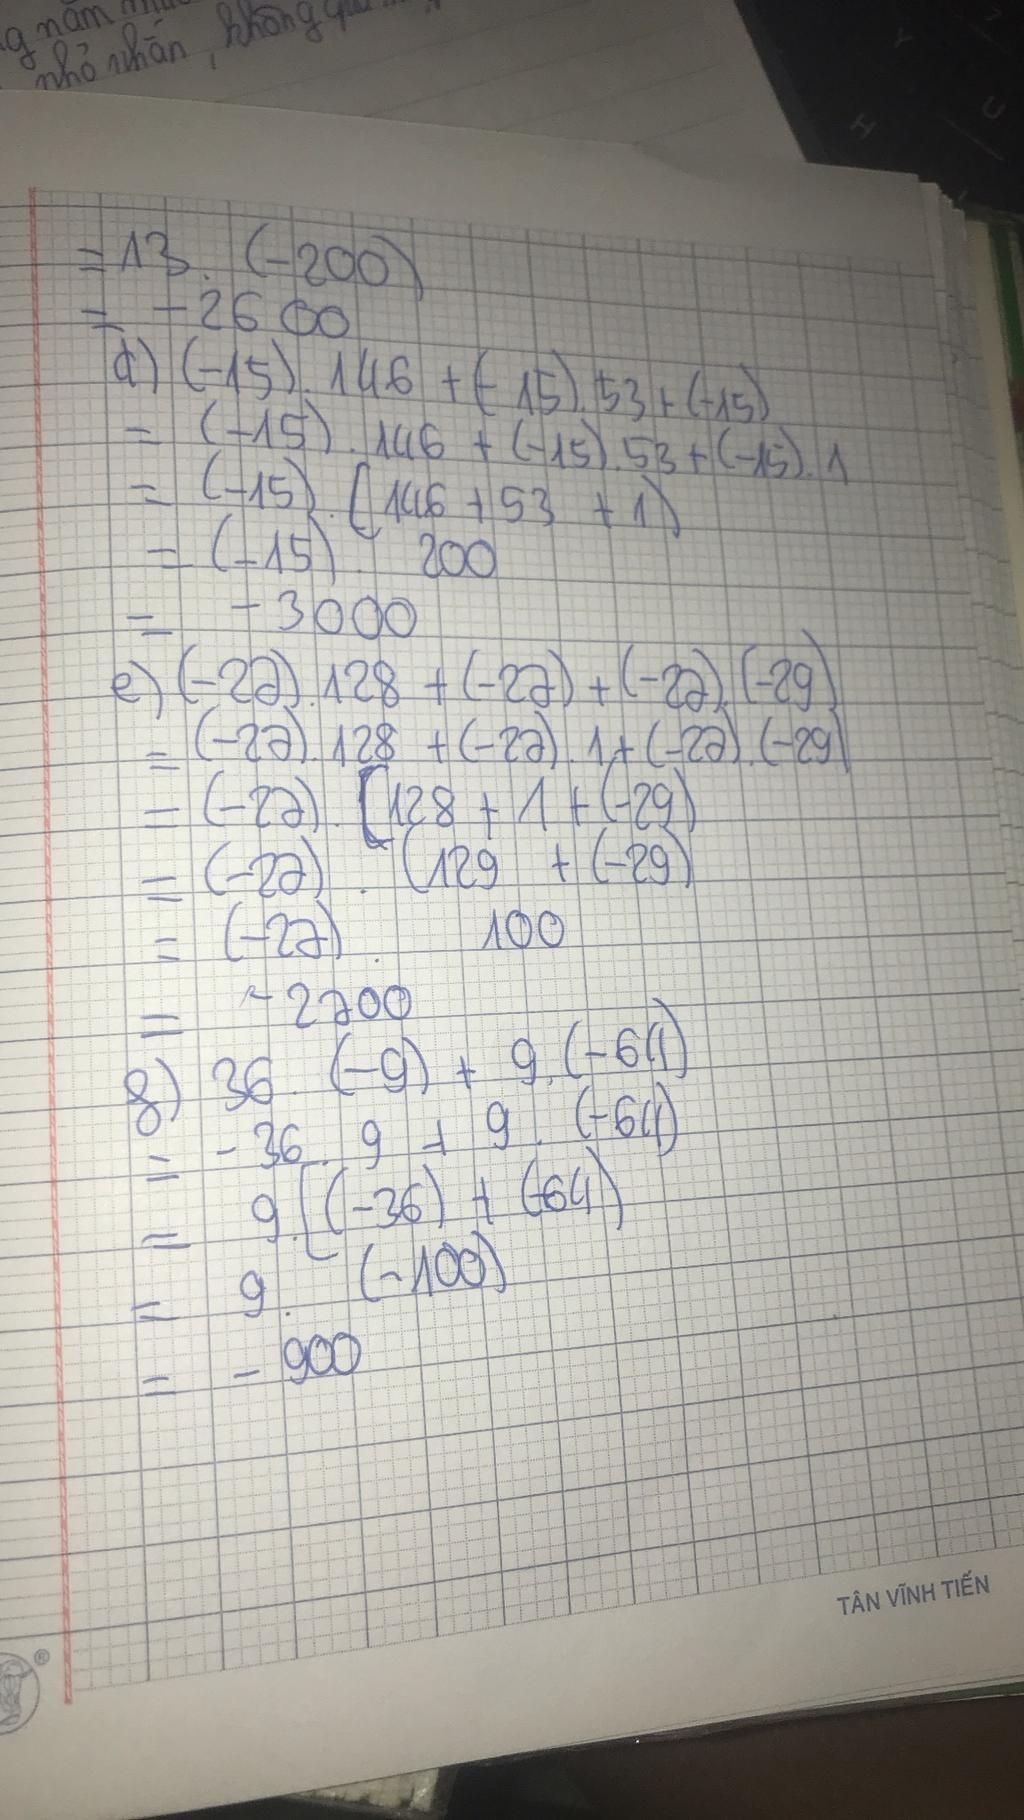 g năm
nhỏ nhắn, không qu
H
Y
U
= 13. (-200)
= -2600
d) (-15). 146 + (-15). 53 + (-15)
= (-15). 146 + (-15). 53 + (-15). 1
= (-15). [146 + 53 + 1)
= (-15). 200
= -3000
e) (-27). 128 + (-27) + (-27). (-29)
= (-27). 128 + (-27). 1 + (-27). (-29)
= (-27). [128 + 1 + (-29)
= (-27). (129 + (-29)
= (-27). 100
= -2700
g) 36. (-9) + 9. (-64)
= -36. 9 + 9. (-64)
= 9. [(-36) + (-64)
= 9. (-100)
= -900
TÂN VĨNH TIẾN
®